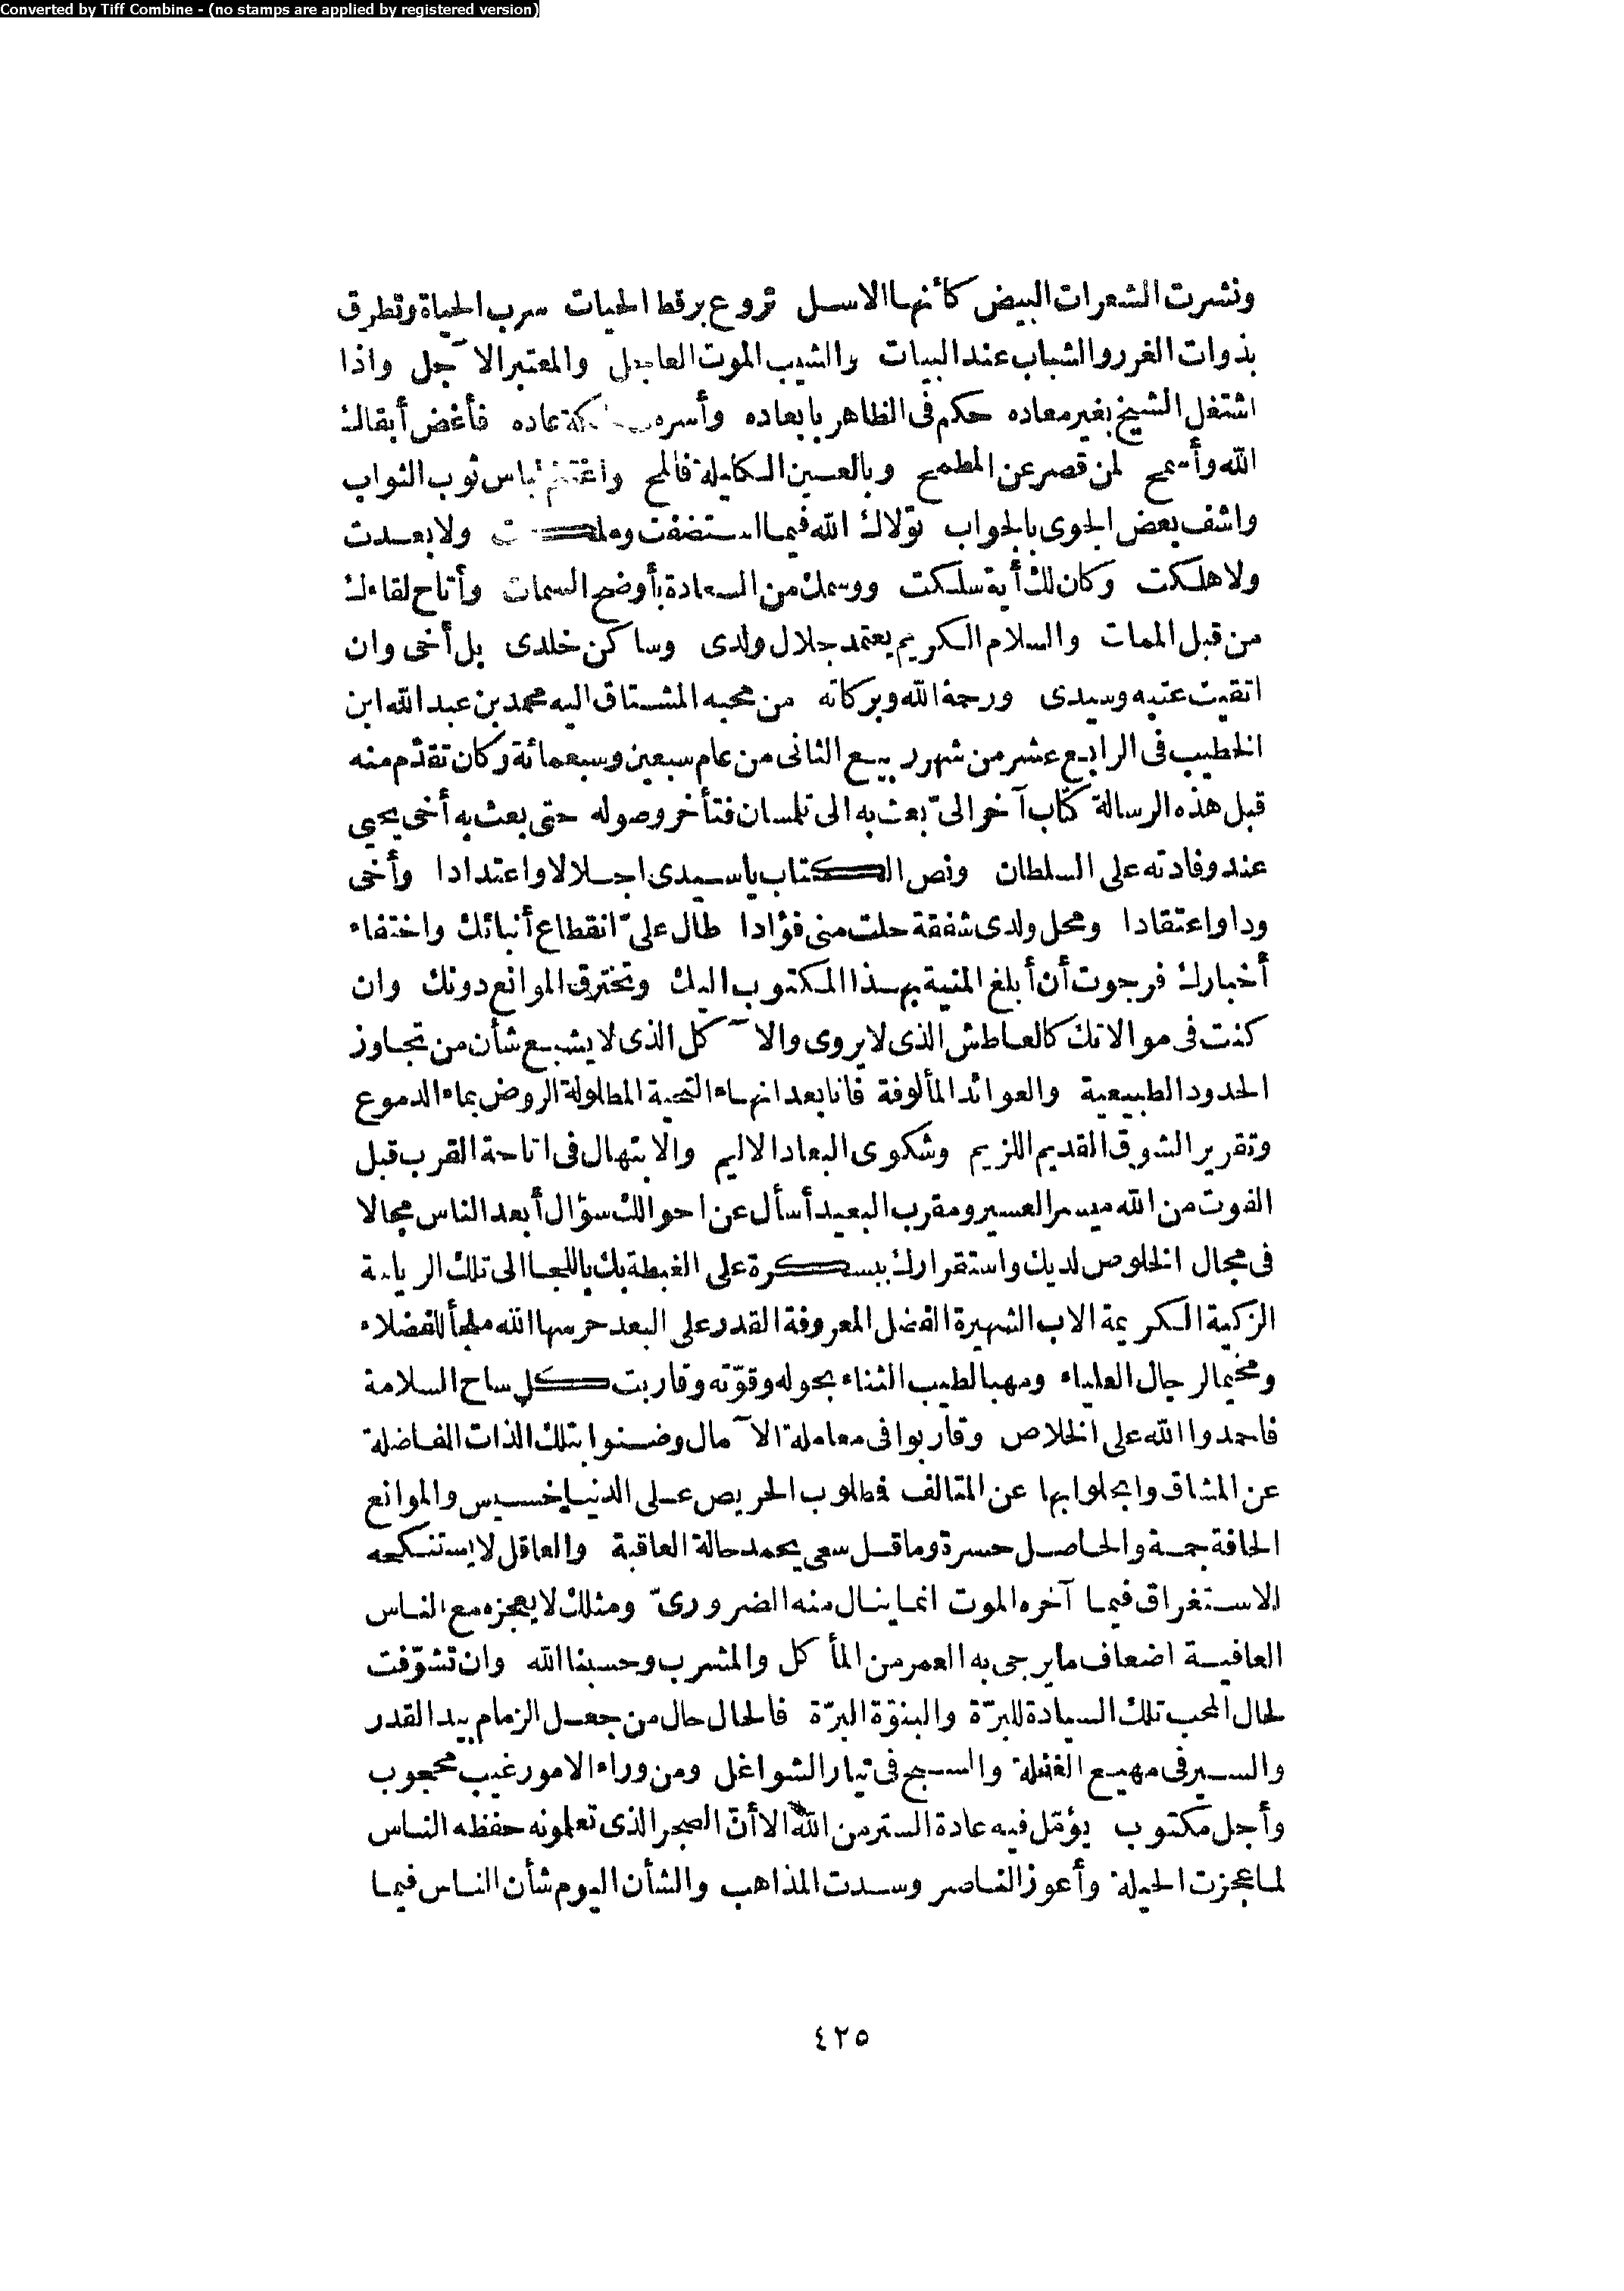 Converted by Tiff Combine - (no stamps are applied by registered version)
ونشرت الشعرات البيض كأنها الاسل تروع برقط الحيات سرب الحياة وتطرق
بذوات الغرر والشباب عند البيات والشيب الموت العاجل والمعتبر الآجل واذا
اشتغل الشيخ بغير معاده حكم فى الظاهر بابعاده وأسره عاده فأغض أبقاك
الله وأسمح لمن قصر عن المطمح وبالعين الكليلة فالمح واغتنم لباس ثوب الثواب
واشف بعض الجوى بالجواب تولاك الله فيما استضفت ولا بعدت
ولا هلكت وكان لك أية سلكت ووسمك من السعادة بأوضح السمات وأتاح لقاءك
من قبل الممات والسلام الكريم يعتمد جلال ولدى وساكن خلدى بل أخى وان
اتقيت عتبه وسيدى ورحمة الله وبركاته من محبه المشتاق اليه محمد بن عبد الله ابن
الخطيب فى الرابع عشر من شهر ربيع الثانى من عام سبعين وسبعمائة وكان تقدّم منه
قبل هذه الرسالة كتاب آخر الىّ بعث به الى تلمسان فتأخر وصوله حتى بعث به أخى يحيى
عند وفادته على السلطان ونص الكتاب يا سيدى اجلالا واعتدادا وأخى
ودا واعتقادا ومحل ولدى شفقة حلت منى فؤادا طال علىّ انقطاع أنبائك واختفاء
أخبارك فرجوت أن أبلغ المنية بهذا المكتوب اليك وتخترق الموانع دونك وان
كنت فى موالاتك كالعاطش الذى لا يروى والآكل الذى لا يشبع شأن من تجاوز
الحدود الطبيعية والعوائد المألوفة فانا بعد انهاء التحية المطلولة الروض بماء الدموع
وتقرير الشوق القديم اللزيم وشكوى البعاد الاليم والابتهال فى اتاحة القرب قبل
الفوت من الله ميسر العسير ومقرب البعيد أسأل عن احوالك سؤال أبعد الناس مجالا
فى مجال الخلوص لديك واستقرارك ببسكرة على الغبطة بك باللجا الى تلك الرياسة
الزكية الكريمة الاب الشهيرة الفضل المعروفة القدر على البعد حرسها الله ملجأ للفضلاء
ومخيما لرجال العلياء ومهبا لطيب الثناء بحوله وقوّته وقاربت كل ساح السلامة
فاحمدوا الله على الخلاص وقاربوا فى معاملة الآمال وضنوا بتلك الذات الفاضلة
عن المشاق وابخلوا بها عن المتالف فمطلوب الحريص على الدنيا خسيس والموانع
الحافة جمة والحاصل حسرة وما قل سعى يحمد حالة العاقبة والعاقل لا يستنكحه
الاستغراق فيما آخره الموت انما ينال منه الضرورىّ ومثلك لا يعجزه مع الناس
العافية اضعاف ما يرجى به العمر من المأكل والمشرب وحسبنا الله وان تشوّفت
لحال المحب تلك السيادة للبرّة والبنوّة البرّة فالحال حال من جعل الزمام بيد القدر
والسير فى مهيع الغفلة والسبح فى تيار الشواغل ومن وراء الامور غيب محجوب
وأجل مكتوب يؤمّل فيه عادة الستر من الله الا أنّ الصبر الذى تعلمونه حفظه الناس
لما عجزت الحيلة وأعوز الناصر وسدت المذاهب والشأن اليوم شأن الناس فيما
٤٢٥